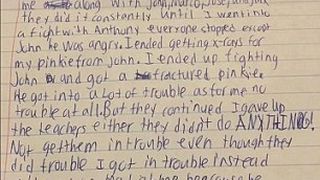 me along with John, Marco, Jose, and Jack
they did it constantly until I went into
a fight with Anthony everyone stopped except
John he was angry. I ended getting x-rays for
my pinkie from John. I ended up fighting
John and got a fractured pinkie
He got into a lot of trouble as for me no
trouble at all. But they continued I gave up
the teachers either they didn't do ANYTHING!
Not get them in trouble even though they
did trouble I got in trouble instead